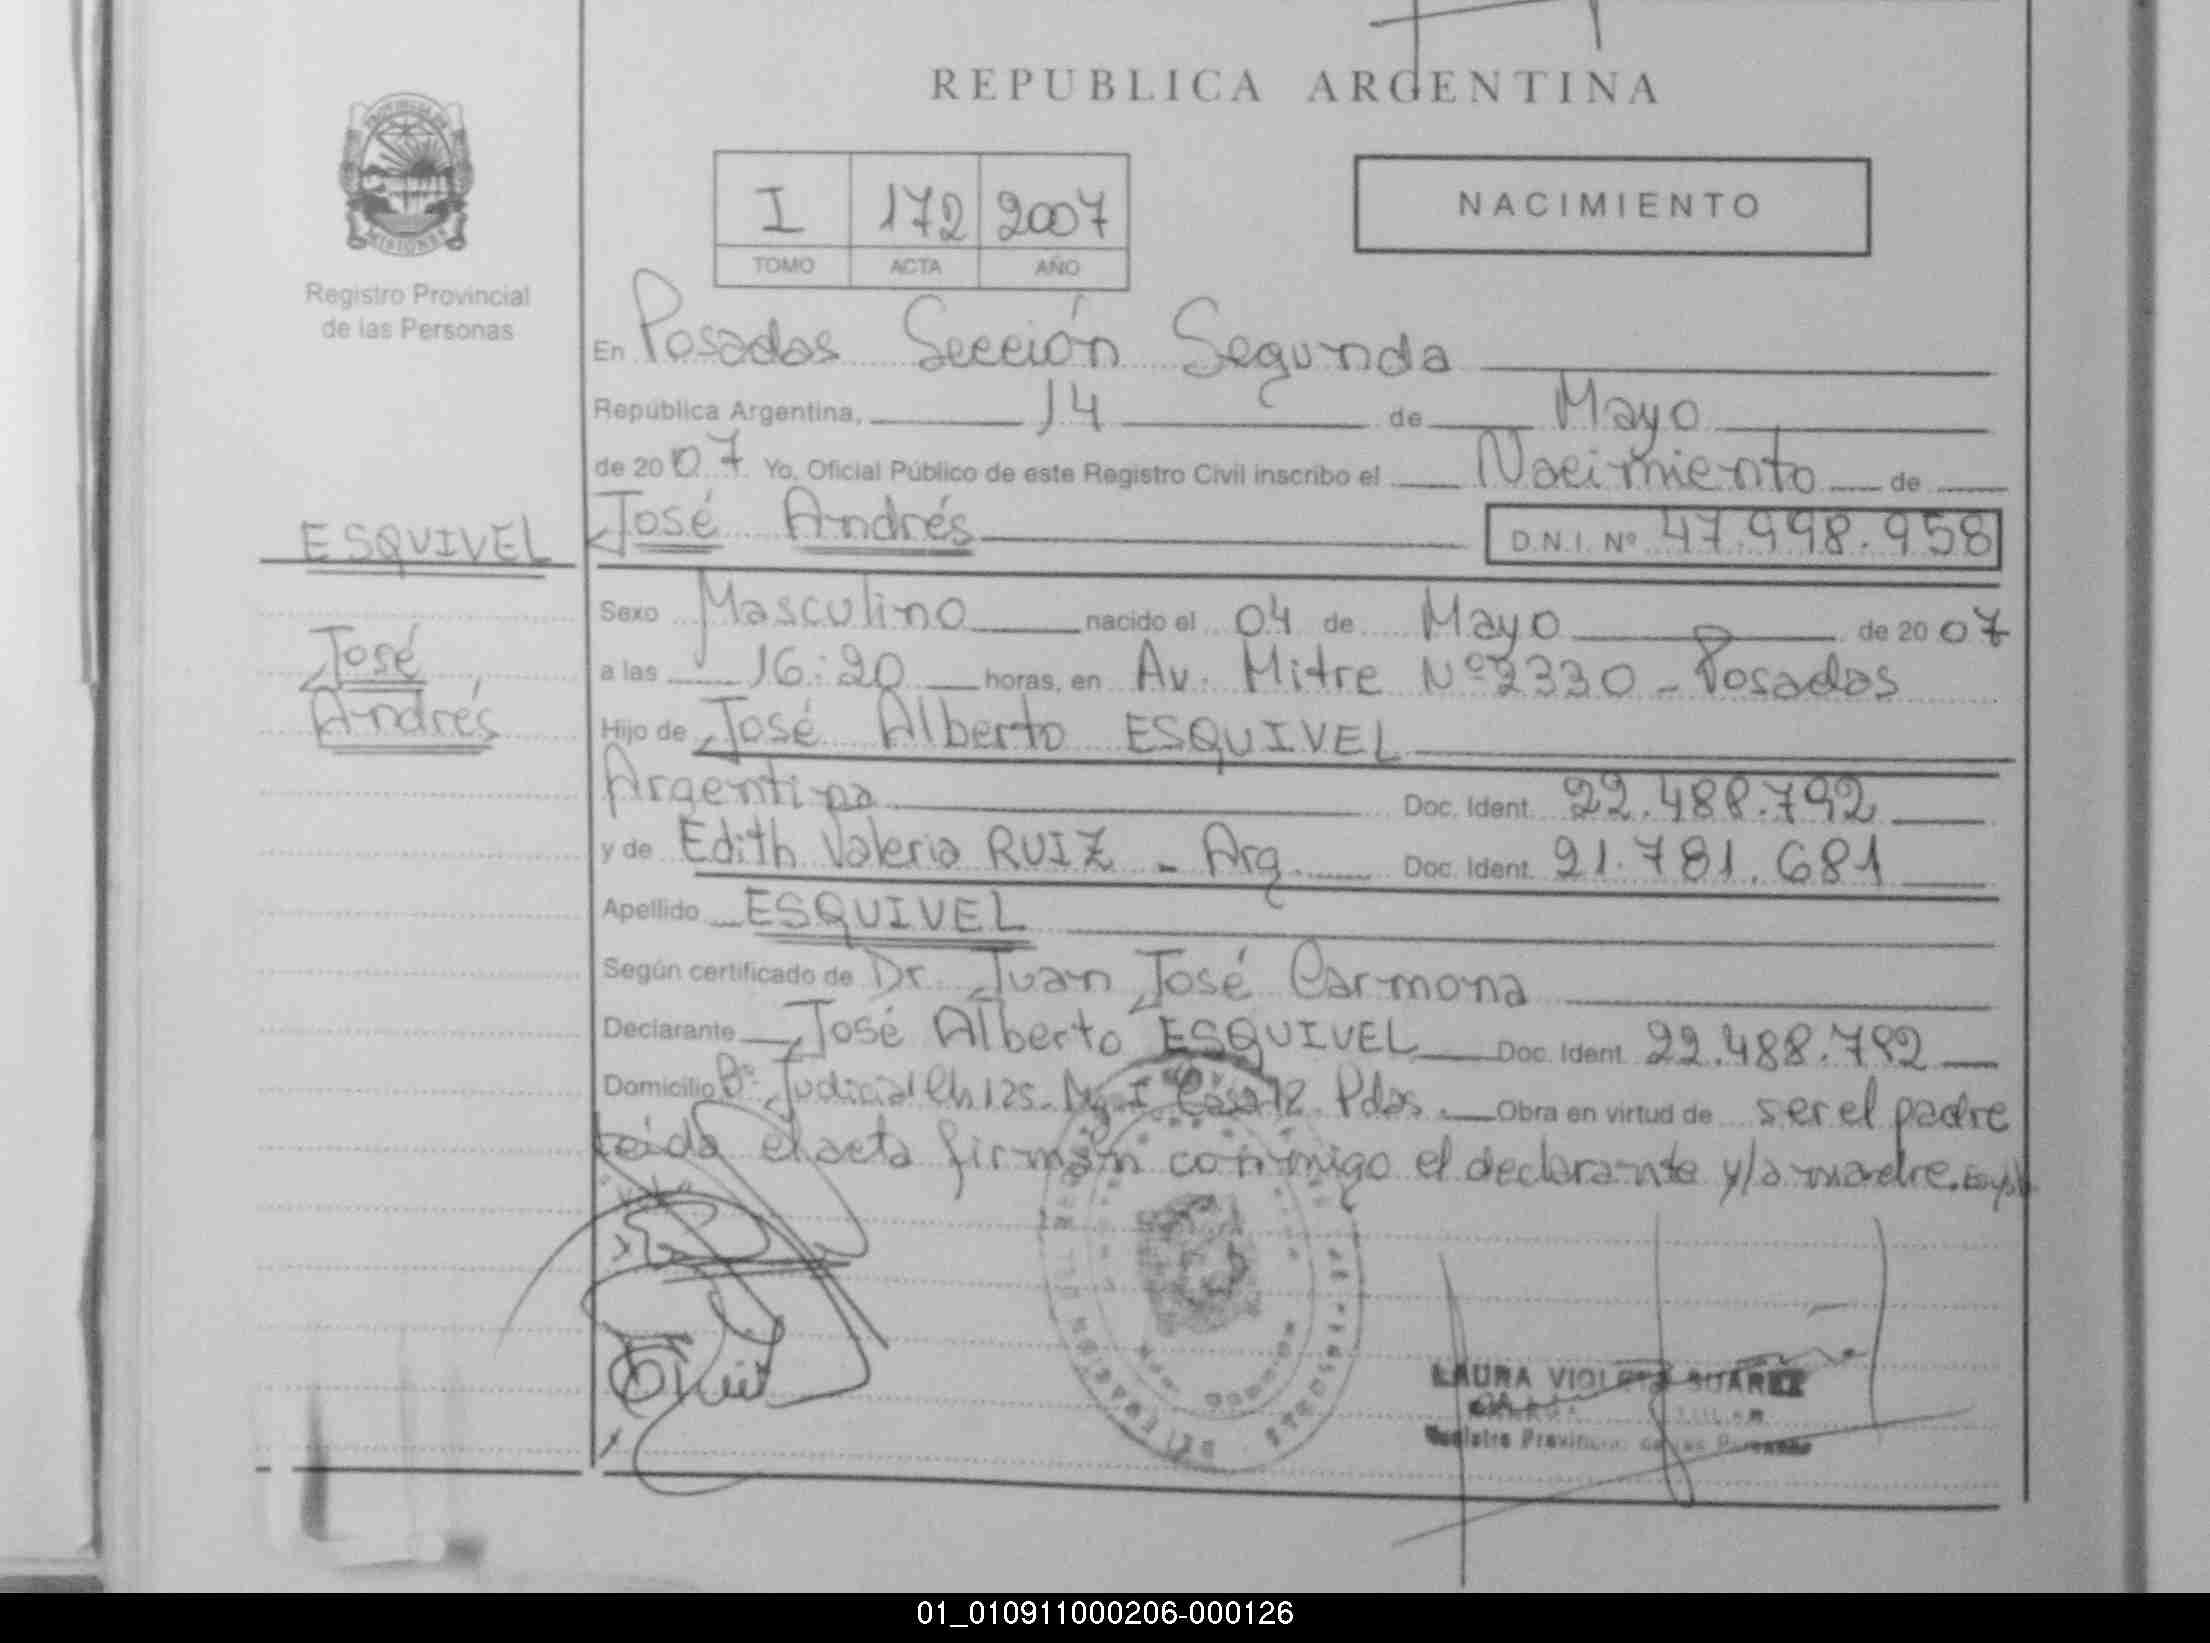 REPUBLICA ARGENTINA
PROVINCIA DE
MISIONES
Registro Provincial
de las Personas
I 172 2007
TOMO ACTA AÑO
NACIMIENTO
En Posadas Sección Segunda
República Argentina, 14 de Mayo
de 2007 Yo, Oficial Público de este Registro Civil inscribo el Nacimiento de
José Andrés D.N.I. Nº 47.998.958
ESQUIVEL
José
Andrés
Sexo Masculino nacido el 04 de Mayo de 2007
a las 16:20 horas, en Av. Mitre Nº 2330 - Posadas
Hijo de José Alberto ESQUIVEL
Argentina Doc. Ident. 22.488.792
y de Edith Valeria RUIZ - Arg. Doc. Ident. 21.781.681
Apellido ESQUIVEL
Según certificado de Dr. Juan José Carmona
Declarante José Alberto ESQUIVEL Doc. Ident. 22.488.792
Domicilio Bº Judicial Ch 125 - Mz I Casa 12 Pdas. Obra en virtud de ser el padre
Leída el acta firman conmigo el declarante y la madre.
LAURA VIOLETA SUAREZ
Registro Provincial de las Personas
01_010911000206-000126